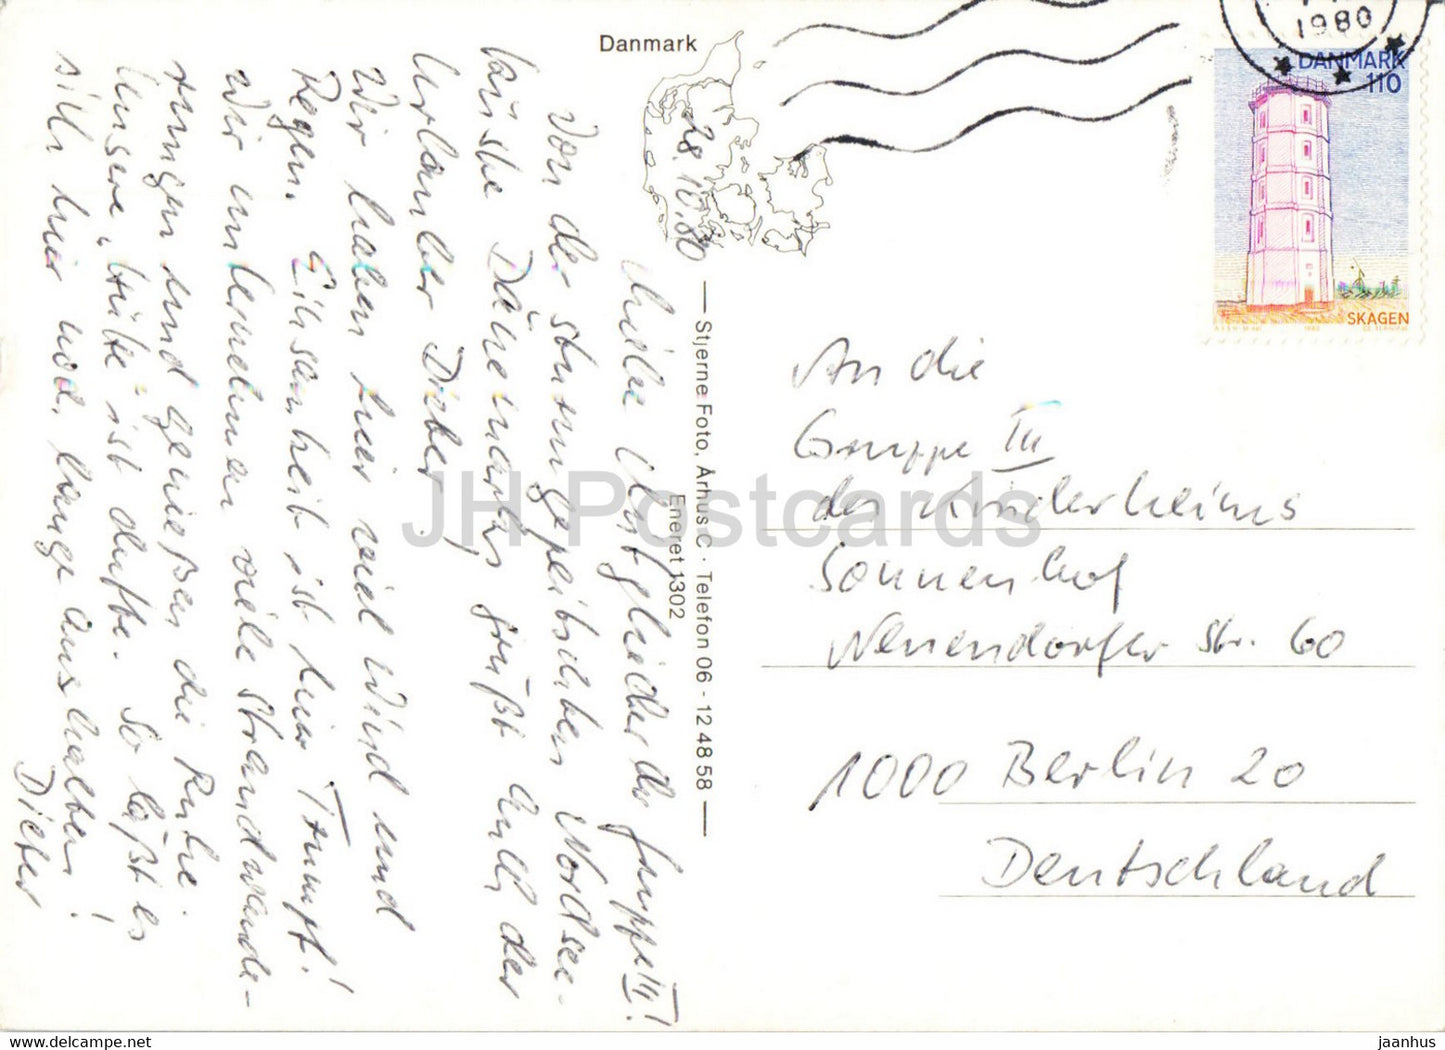 Danmark
28.10.80
Liebe Mitglieder der Gruppe III!
Von der sturmgepeitschten Nordsee-
küste Dänemarks grüßt Euch der
Urlauber Dieter.
Wir haben hier viel Wind und
Regen. Einsamkeit ist hier Trumpf!
Wir unternehmen viele Strandwande-
rungen und genießen die Ruhe.
Unsere „Hütte" ist dufte. So läßt es
sich hier noch lange aushalten!
Dieter
Stjerne Foto, Århus C · Telefon 06 - 12 48 58
Eneret 1302
1980
DANMARK
110
SKAGEN
1980
An die
Gruppe III
des Kinderheims
Sonnenhof
Neuendorfer Str. 60
1000 Berlin 20
Deutschland
JH Postcards
jh-postcards.myshopify.com
jaanhus